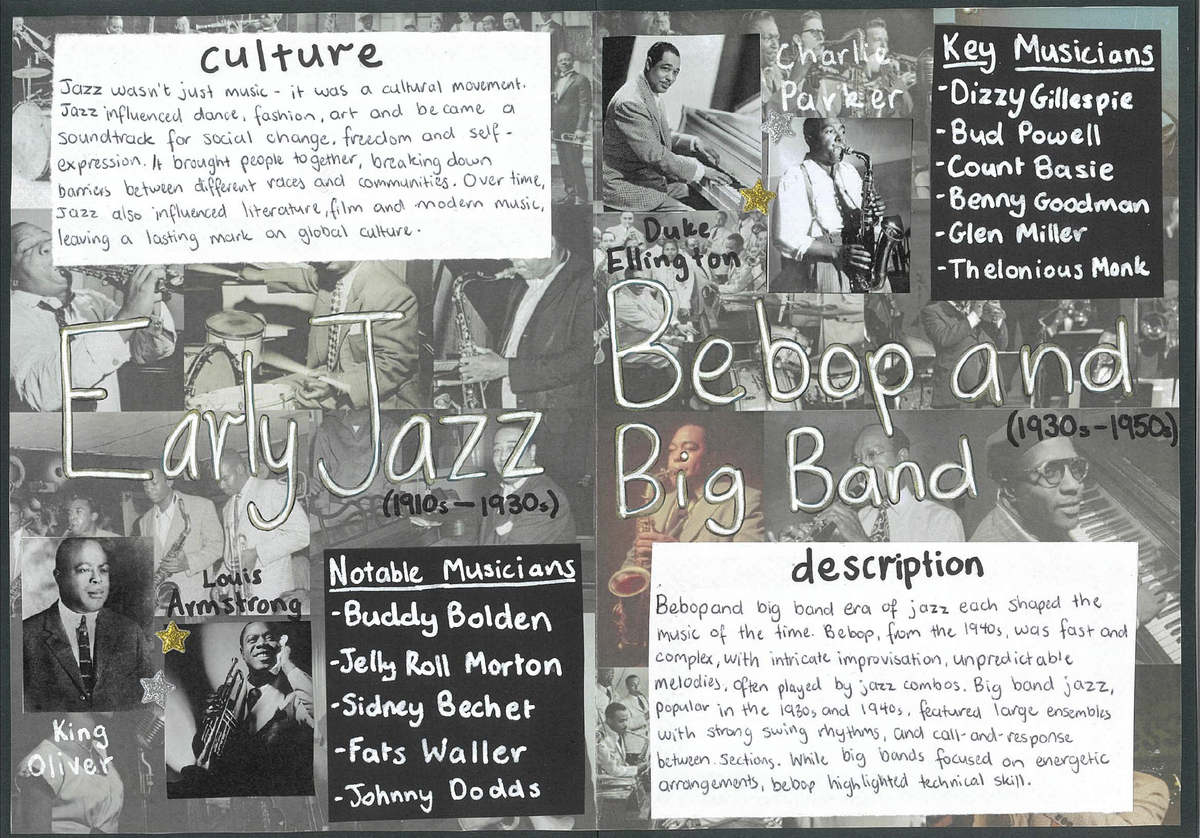 culture
Jazz wasn't just music - it was a cultural movement.
Jazz influenced dance, fashion, art and became a
soundtrack for social change, freedom and self-
expression. It brought people together, breaking down
barriers between different races and communities. Over time,
Jazz also influenced literature, film and modern music,
leaving a lasting mark on global culture.
Early Jazz
(1910s-1930s)
King
Oliver
Louis
Armstrong
Notable Musicians
-Buddy Bolden
-Jelly Roll Morton
-Sidney Bechet
-Fats Waller
-Johnny Dodds
Duke
Ellington
Charlie
Parker
Key Musicians
-Dizzy Gillespie
-Bud Powell
-Count Basie
-Benny Goodman
-Glen Miller
-Thelonious Monk
Bebop and
Big Band
(1930s-1950s)
description
Bebop and big band era of jazz each shaped the
music of the time. Bebop, from the 1940s, was fast and
complex, with intricate improvisation, unpredictable
melodies, often played by jazz combos. Big band jazz,
popular in the 1930s and 1940s, featured large ensembles
with strong swing rhythms, and call-and-response
between sections. While big bands focused on energetic
arrangements, bebop highlighted technical skill.